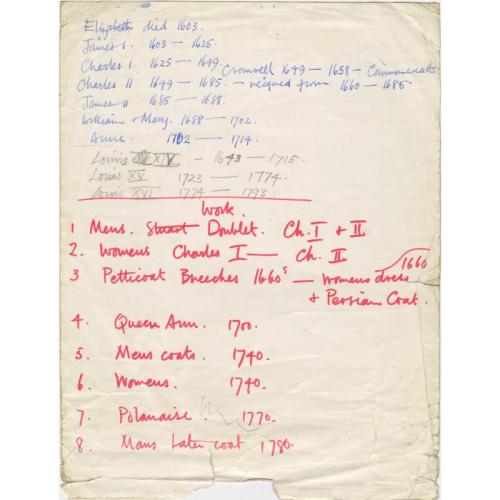 Elizabeth died 1603.
James I. 1603 — 1625.
Charles I 1625 — 1649. Cromwell 1649 — 1658 — Commonwealth
Charles II 1649 — 1685. — reigned from 1660 — 1685.
James II 1685 — 1688.
William + Mary. 1688 — 1702.
Anne. 1702 — 1714.
Louis XIV - 1643 — 1715.
Louis XV 1723 — 1774.
Louis XVI 1774 — 1793.
Work.
1 Mens. Stuart Doublet. Ch. I + II
2. Womens Charles I — Ch. II
1660
3 Petticoat Breeches 1660s — Womens dress
+ Persian Coat.
4. Queen Ann. 1700.
5. Mens coats. 1740.
6. Womens. 1740.
7. Polanaise. 1770.
8. Mans Later coat 1780.